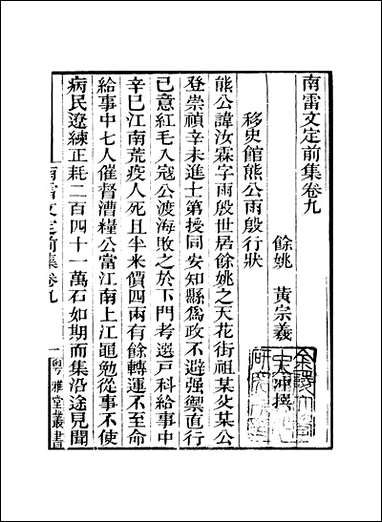 南雷文定前集卷九
餘姚 黃宗羲 太沖撰
移史館熊公雨殷行狀
熊公諱汝霖字雨殷世居餘姚之天花街祖某父某公
登崇禎辛未進士第授同安知縣爲政不避强禦直行
己意紅毛入寇公渡海敗之於下門考選戸科給事中
辛巳江南荒疫人死且半米價四兩有餘轉運不至命
給事中七人催督漕糧公當江南上江黽勉從事不使
病民遼練正耗二百四十一萬石如期而集沿途見聞
南雷文定前集卷九 一 粵雅堂叢書